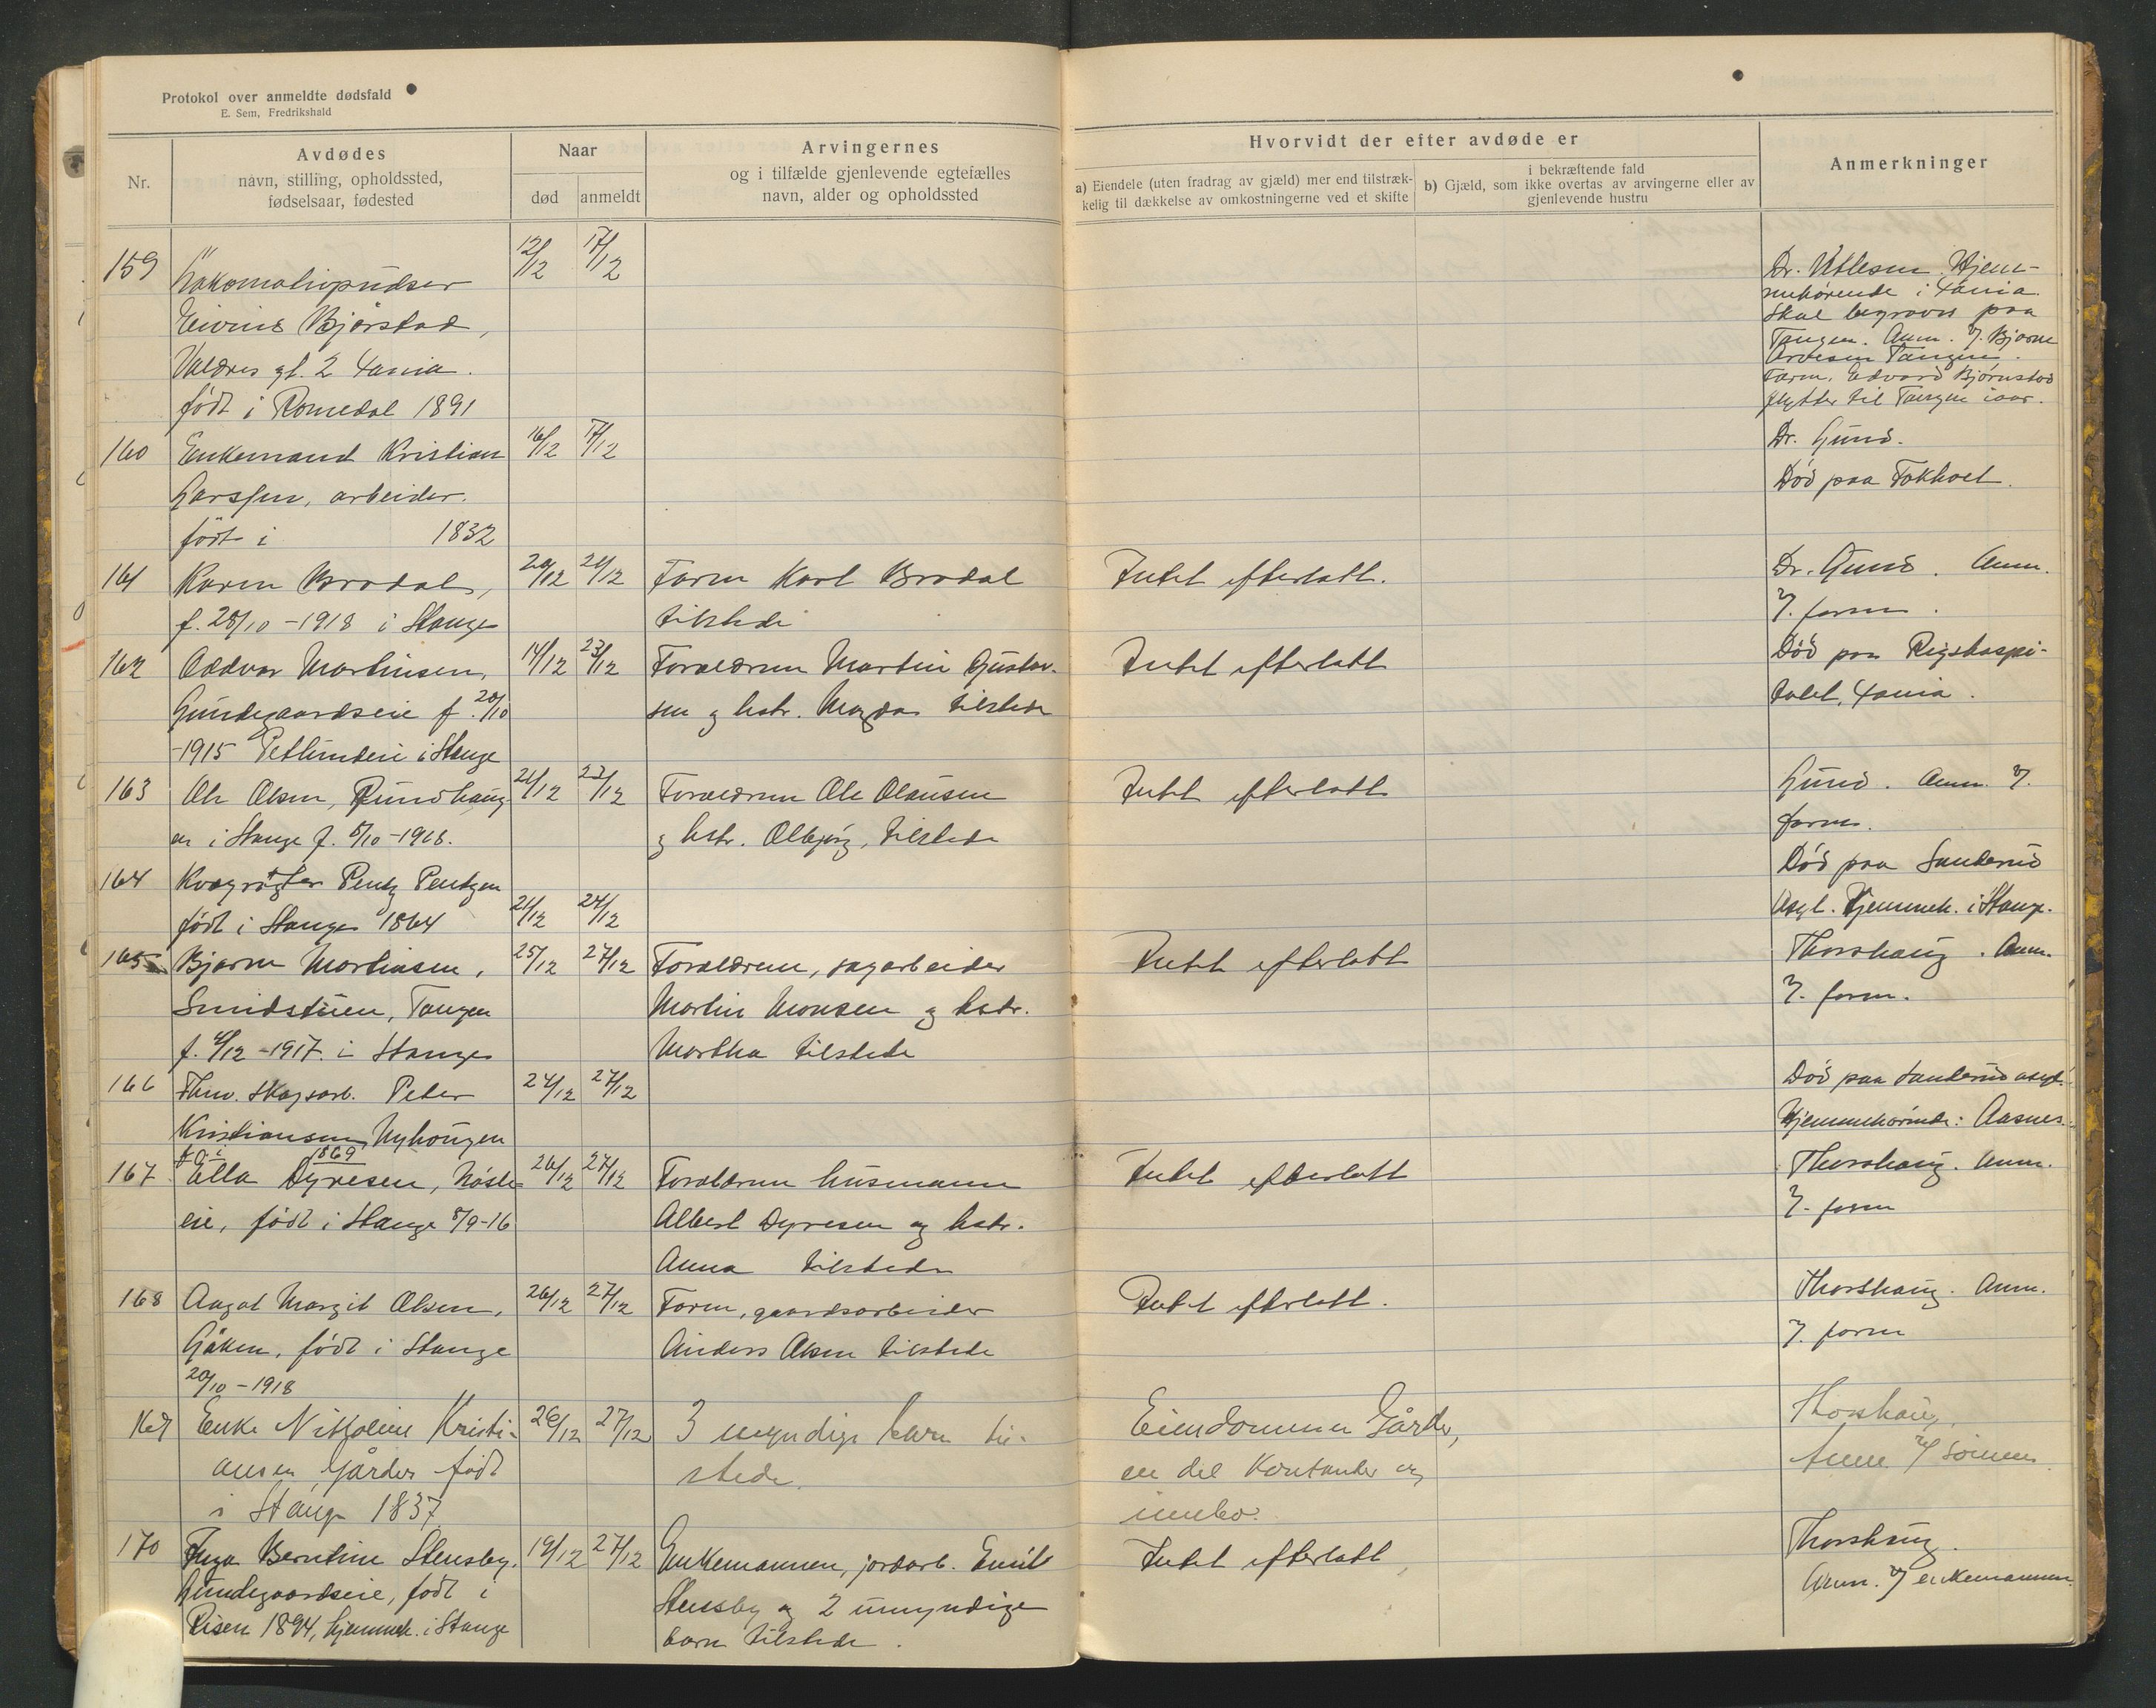 Protokol over anmeldte dødsfald
E. Sem, Fredrikshald
Nr.
Avdødes
navn, stilling, opholdssted,
fødselsaar, fødested
Naar
død
anmeldt
Arvingernes
og i tilfælde gjenlevende egtefælles
navn, alder og opholdssted
Hvorvidt der efter avdøde er
a) Eiendele (uten fradrag av gjæld) mer end tilstræk-
kelig til dækkelse av omkostningerne ved et skifte
i bekræftende fald
b) Gjæld, som ikke overtas av arvingerne eller av
gjenlevende hustru
Anmerkninger
159
Lokomotivpudser
Eivind Bjørstad,
Valdres gt. 2 Xania.
født i Romedal 1891
12/12
17/12
Dr. Hjem-
mehørende i Xania.
Skal begraves paa
Tangen. Anm. v/ Bjarne
Arnesen Tangen.
Farm. Edvard Bjørnstad
flytter til Tangen iaar.
160
Enkemand Kristian
Larssen, arbeider.
født i 1832
16/12
17/12
Dr. Lund.
Død paa Fokhoel.
161
Karen Brodal,
f. 28/10 - 1918 i Stange
20/12
21/12
Faren Karl Brodal
tilstede
Intet efterlatt.
Dr. Lund. Anm.
v/. faren.
162
Oddvar Martinsen,
Lundegaardseie f. 20/10
-1915 i Stange
14/12
23/12
Forældrene Martin Gustav-
sen og hstr. Magda tilstede
Intet efterlatt
Død paa Rigshospi-
talet, Xania.
163
Ole Olsen, Rundhaug-
en i Stange f. 5/10 - 1918.
21/12
23/12
Forældrene Ole Olausen
og hstr. Olbjørg, tilstede
Intet efterlatt
Lund. Anm. v/.
faren.
164
Kvægrøgter Pentz Pentzen
født i Stange 1864
21/12
24/12
Død paa Sanderud
Asyl. Hjemmeh. i Stange.
165
Bjarne Martinsen,
Smidstuen, Tangen
f. 4/12 - 1917. i Stange
25/12
27/12
Forældrene, sagarbeider
Martin Monsen og hstr.
Martha tilstede
Intet efterlatt
Thorshaug. Anm.
v/. faren.
166
Skogsarb. Peter
Kristiansen Nyhaugen
1869
24/12
27/12
Død paa Sanderud asyl.
Hjemmehørende: Aasnes.
167
Ella Dyresen, Nøsle-
eie, født i Stange 8/9-16
26/12
27/12
Forældrene husmann
Albert Dyresen og hstr.
Anna tilstede
Intet efterlatt
Thorshaug. Anm.
v/. faren
168
Aagot Margit Olsen,
Løken, født i Stange
20/10 - 1918
26/12
27/12
Faren, gaardsarbeider
Anders Olsen tilstede
Intet efterlatt.
Thorshaug. Anm.
v/. faren
169
Enke Kristi-
ansen Gårder født
i Stange 1837.
26/12
27/12
3 myndige barn til-
stede.
Eiendommen Gårder,
en del kontanter og
innbo.
Thorshaug.
Anm v/ sønnen.
170
Inga Berntine Stensby,
Lundegaardseie, født i
Risen 1894, hjemmeh. i Stange
19/12
27/12
Enkemannen, jordarb. Emil
Stensby og 2 umyndige
barn tilstede.
Intet efterlatt,
Thorshaug.
Anm. v/ enkemannen.